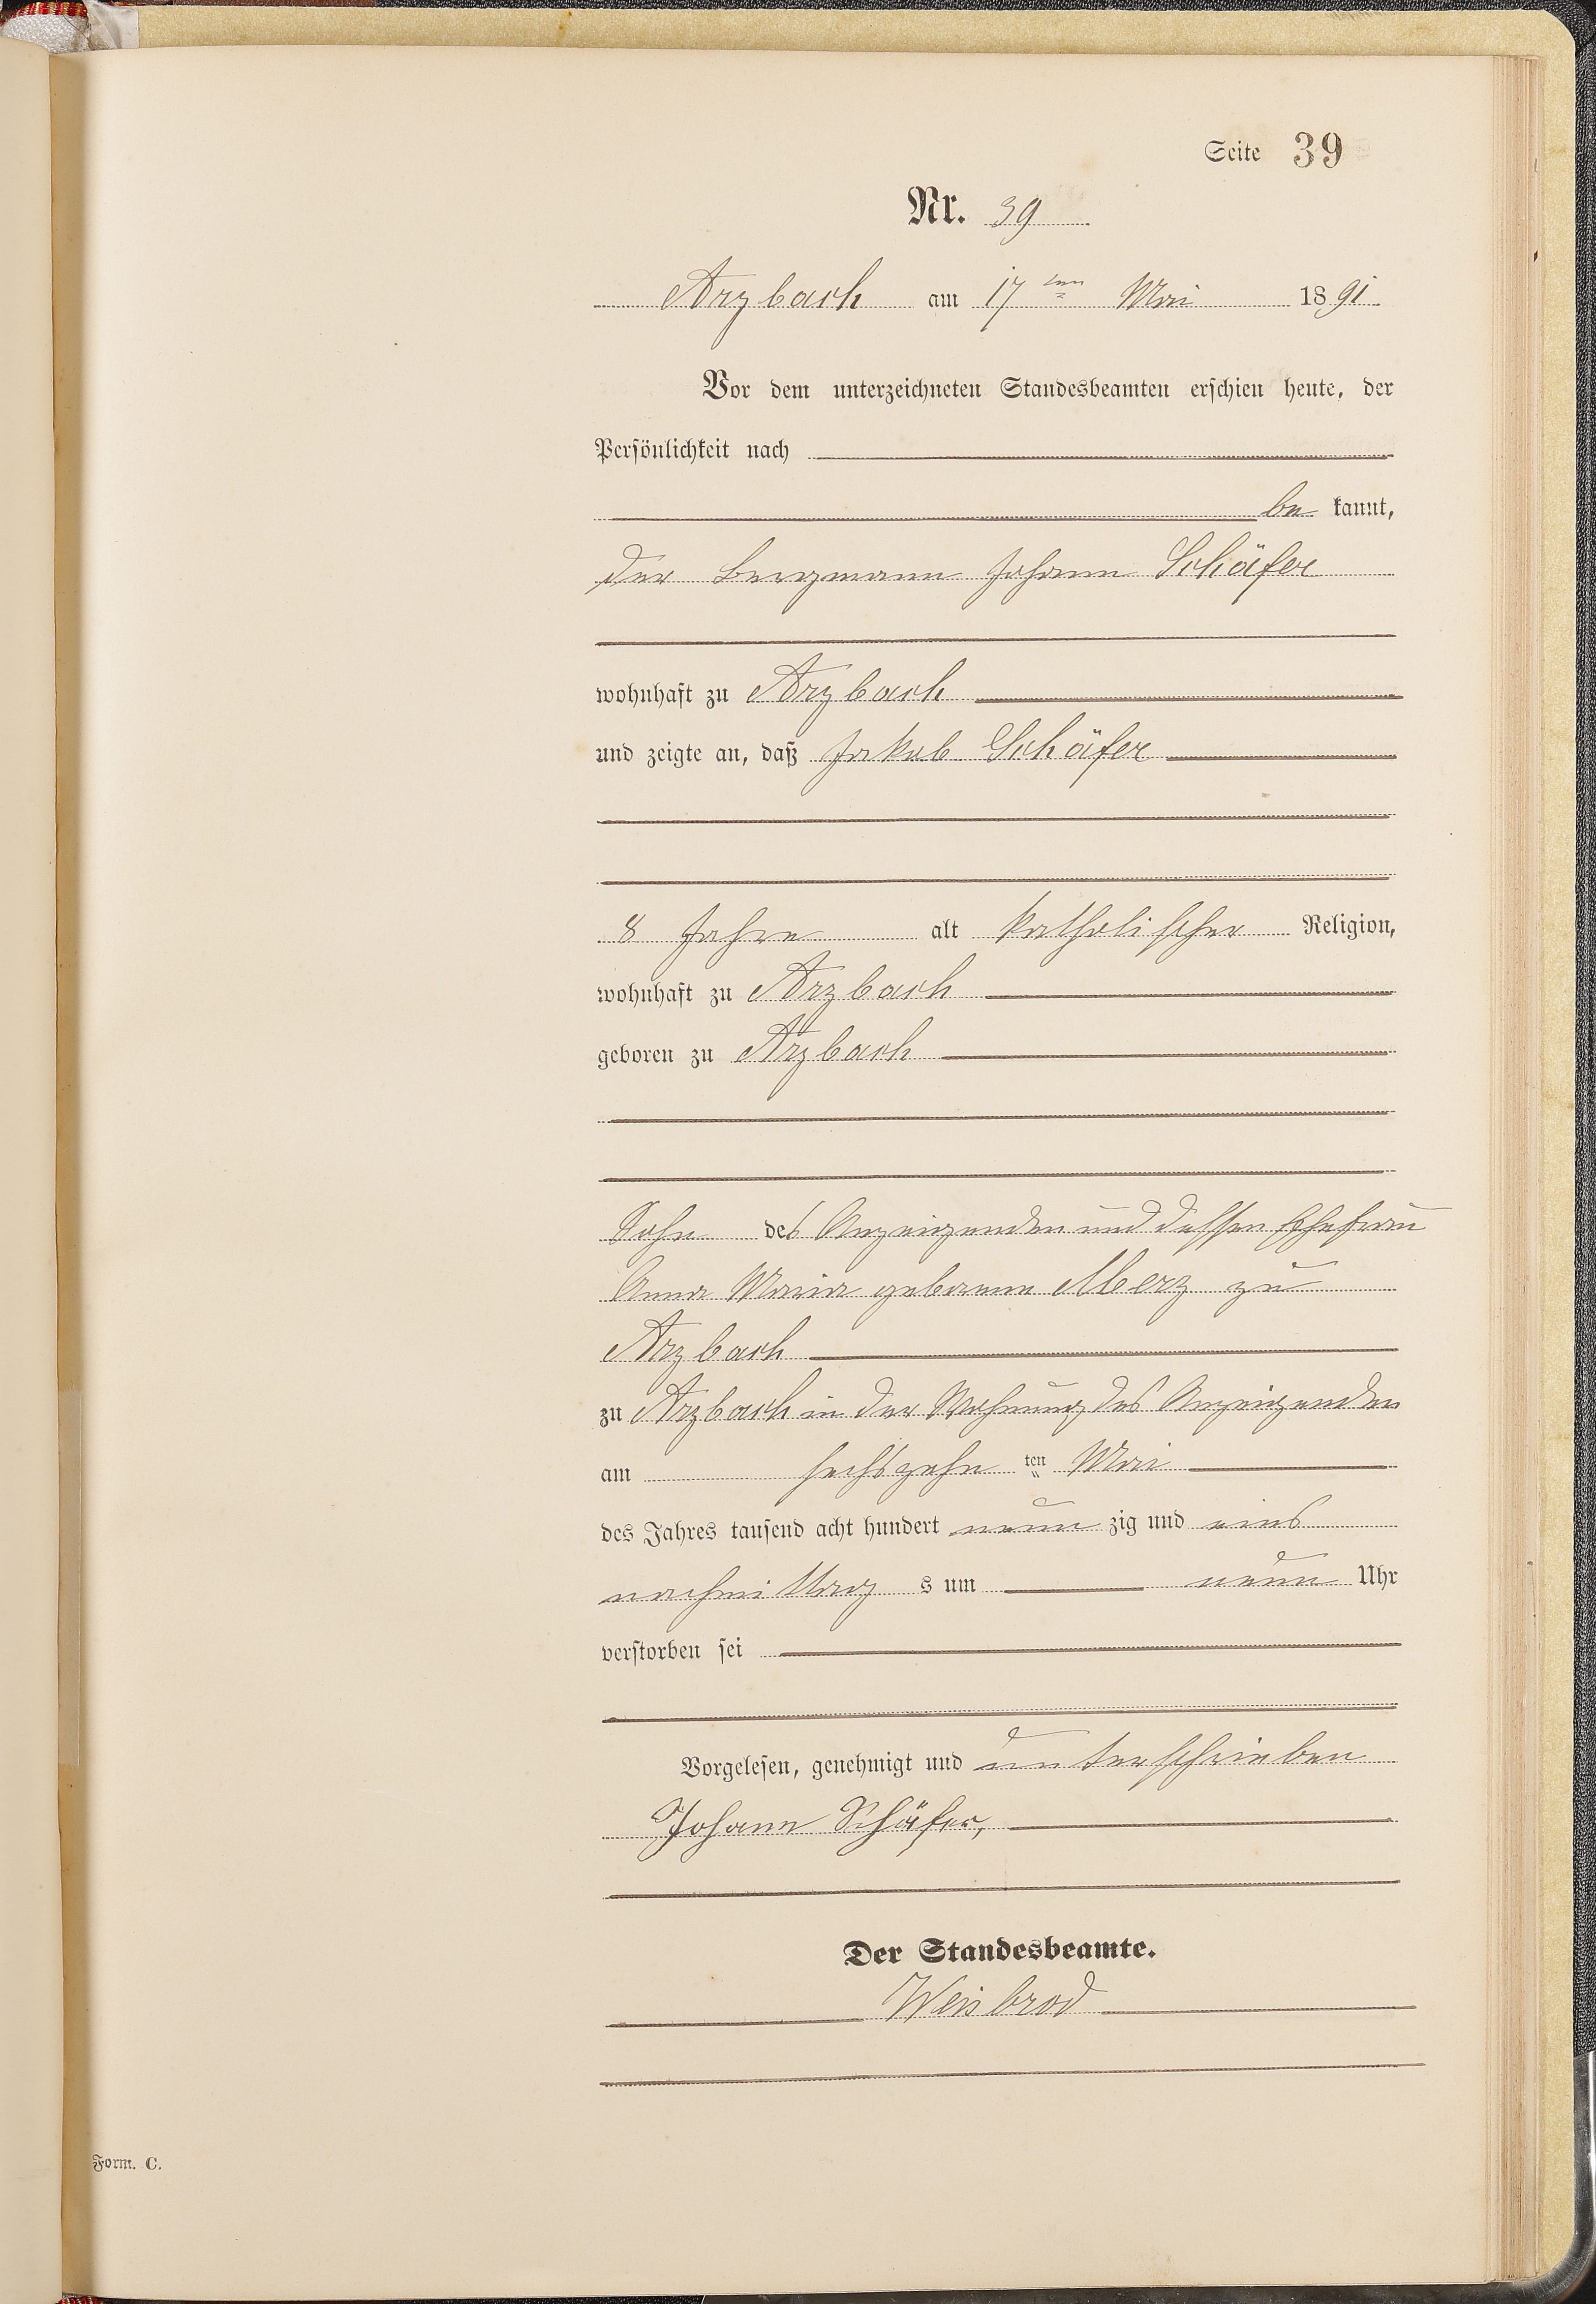 Seite 39
Nr. 39
Arzbach am 17ten Mai 1891
Vor dem unterzeichneten Standesbeamten erschien heute, der
Persönlichkeit nach
be kannt,
der Bergmann Johann Schäfer
wohnhaft zu Arzbach
und zeigte an, daß Jakob Schäfer
8 Jahre alt katholischer Religion,
wohnhaft zu Arzbach
geboren zu Arzbach
Sohn des Anzeigenden und dessen Ehefrau
Anna Maria geborene Merz zu
Arzbach
zu Arzbach in der Wohnung des Anzeigenden
am sechszehn ten Mai
des Jahres tausend acht hundert neun zig und eins
nachmittag s um neun Uhr
verstorben sei
Vorgelesen, genehmigt und unterschrieben
Johann Schäfer,
Der Standesbeamte.
Weisbrod
Form. C.